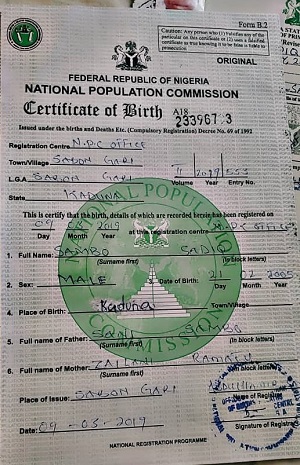 Form B.2
Caution: Any person who (1) Falsifies any of the
particular on this certificate or (2) uses a falsified
certificate as true knowing it to be false is liable to
prosecution
ORIGINAL
FEDERAL REPUBLIC OF NIGERIA
NATIONAL POPULATION COMMISSION
Certificate of Birth A18
233967 3
Issued under the births and Deaths Etc. (Compulsory Registration) Decree No. 69 of 1992
Registration Centre N.P.C OFFICE
Town/Village SABON GARI II 2019 553
L.G.A SABON GARI Volume Year Entry No.
State KADUNA
This is certify that the birth, details of which are recorded herein has been registered on
09 03 2019 at this registration centre N.P.C OFFICE
Day Month Year
1. Full Name: SAMBO SADIQ
(Surname first) (In block letters)
2. Sex: MALE 3. Date of Birth: 21 02 2005
Day Month Year
4. Place of Birth: Kaduna Town/Village
5. Full name of Father: SANI SAMBO
(Surname first) (In block letters)
6. Full name of Mother: ZAILANI RAMATU
(Surname first) (In block letters)
Place of Issue: SABON GARI
Name of Registrar
Date: 09-03-2019
Signature of Registrar
NATIONAL REGISTRATION PROGRAMME